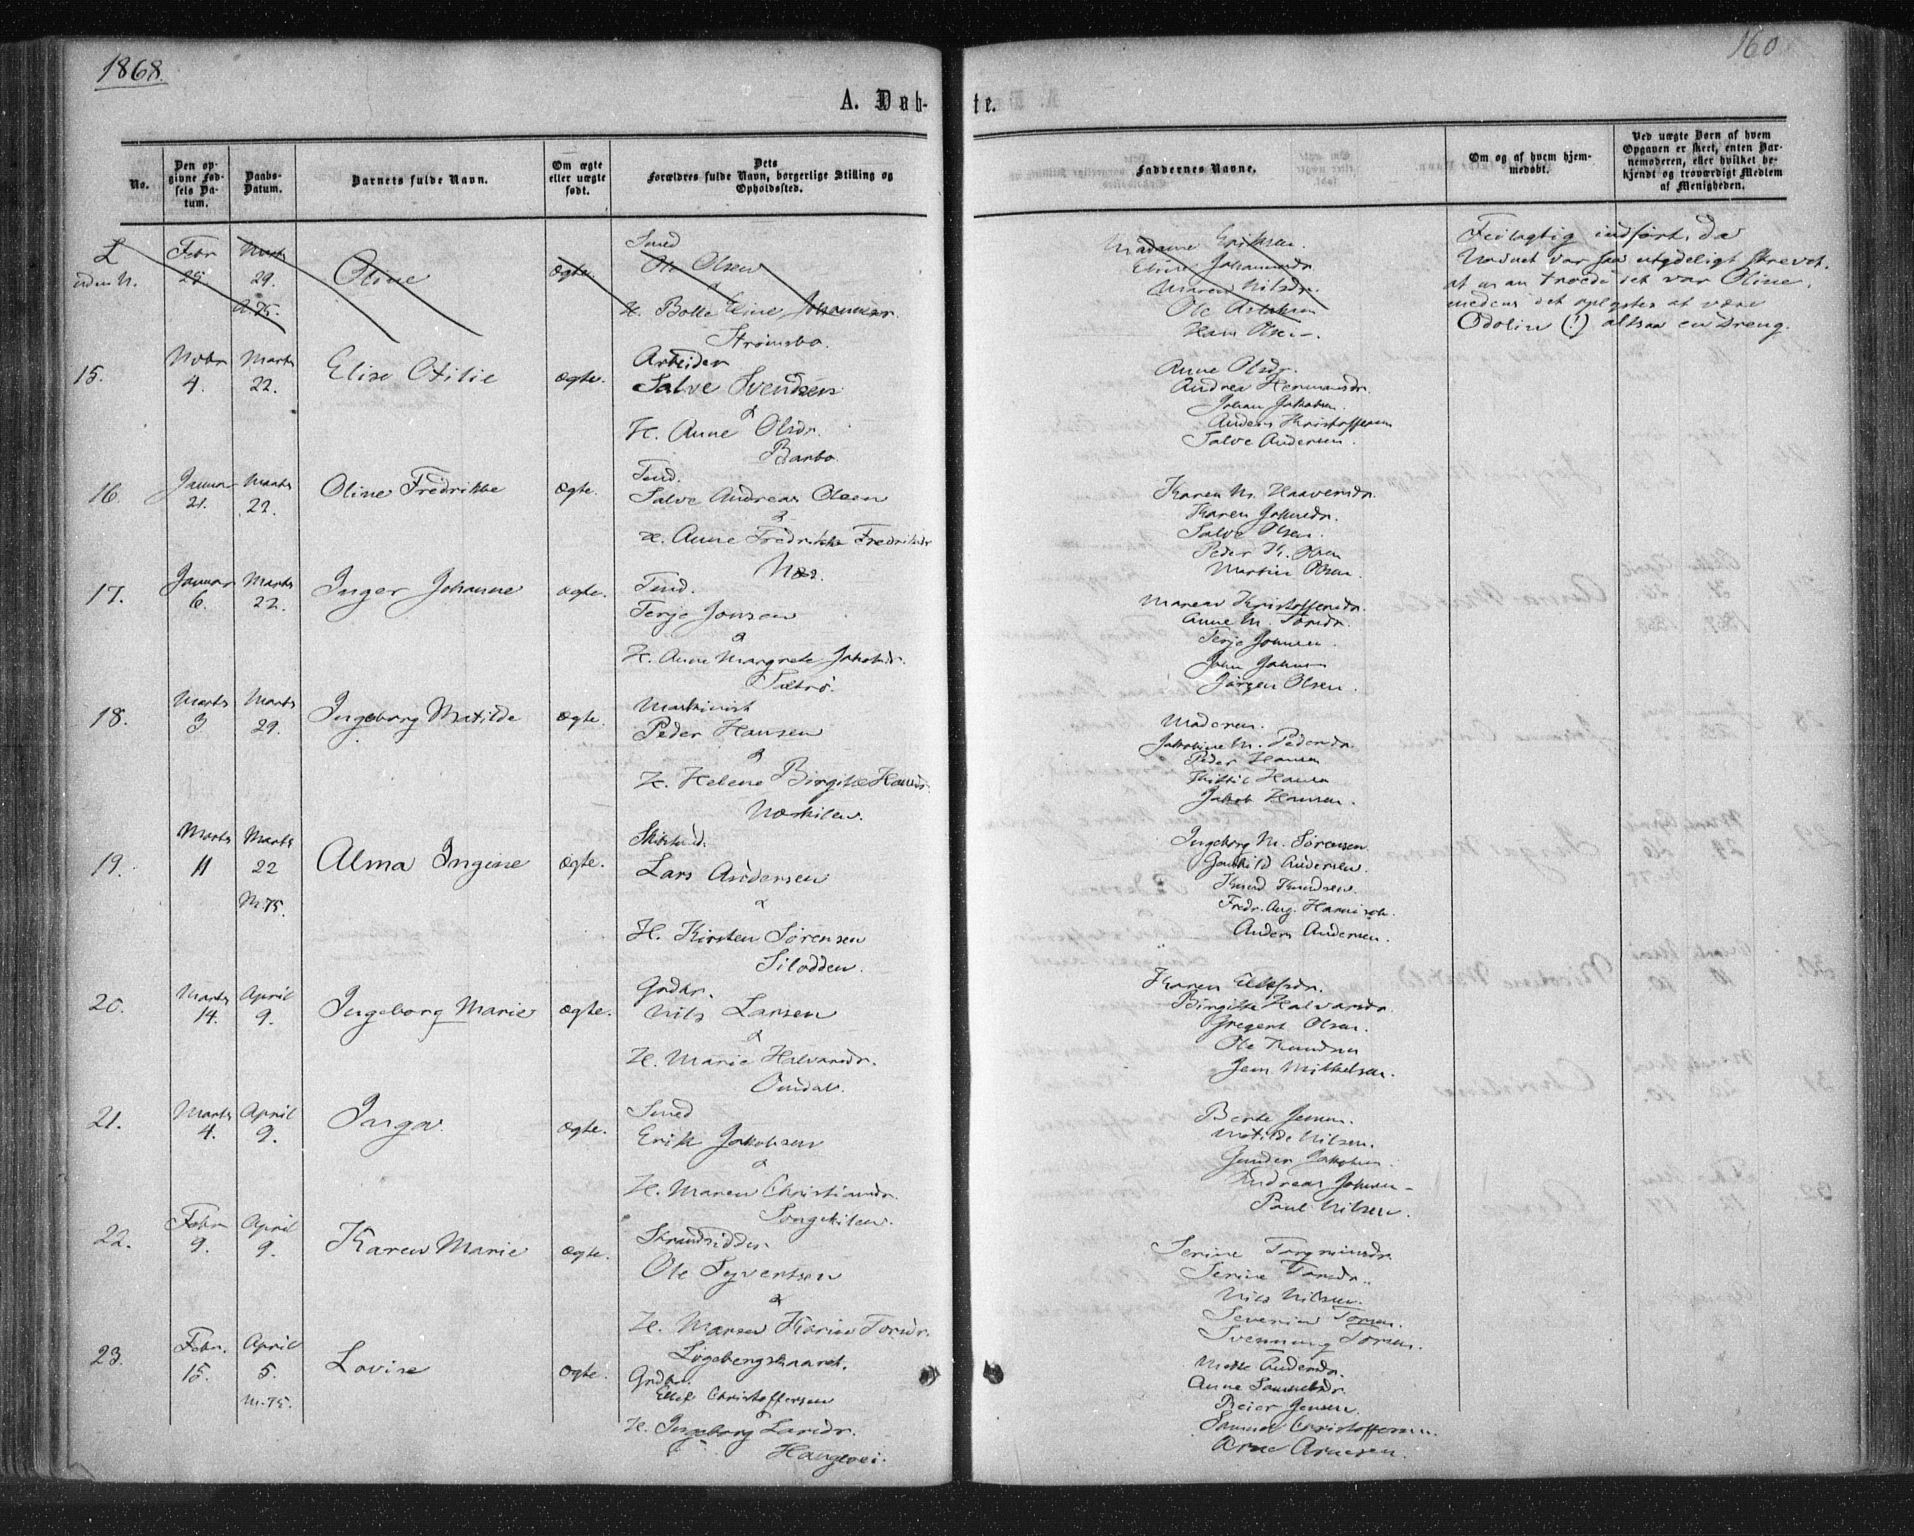 1868.
160
A. Døb-
te.
No.
Den op-
givne Fød-
sels Da-
tum.
Daabs-
Datum.
Barnets fulde Navn.
Om ægte
eller uægte
født.
Dets
Forældres fulde Navn, borgerlige Stilling og
Opholdssted.
Faddernes Navne.
Om og af hvem hjem-
medøbt.
Ved uægte Børn af hvem
Opgaven er skeet, enten Bar-
nemoderen, eller hvilket be-
kjendt og troværdigt Medlem
af Menigheden.
uden N.
Febr
Marts
29.
Oline
ægte
Smed
Ole Olsen
&
H. Bolle Eline Johannesdr.
Strømsbo.
Madame Eriksen.
Eline Johannesdr
Maren Nilsdr.
Ole
Hans Olsen.
Feilagtig indført, da
Navnet var saa utydeligt skrevet,
at man troede det var Oline,
medens det oplystes at være
Odolin (!) altsaa en Dreng.
15.
Nobr
4.
Marts
22.
Elise Otilie
ægte.
Arbeider
Salve Svendsen
&
H. Anne Olsdr.
Barbo.
Anne Olsdr.
Andrea Hermansdr.
Johan Jakobsen.
Anders Kristoffersen
Salve Andersen.
16.
Januar
21.
Marts
22.
Oline Fredrikke
ægte.
Inds.
Salve Andreas Olsen
&
H. Anne Fredrikke Fredriksdr
Næs.
Karen M. Haavorsdr.
Karen Johnsdr.
Salve Olsen.
Peder K. Olsen
Martin Olsen.
17.
Januar
6.
Marts
22.
Inger Johanne
ægte.
Inds.
Terje Jonsen
&
H. Anne Margrete Jakobsdr.
Sætrø.
Maren Kristoffersdr.
Anne M. Torsdr.
Terje Johnsen.
John Johnsen
Jørgen Olsen.
18.
Marts
3
Marts
29.
Ingeborg Matilde
ægte.
Maskinist
Peder Hansen
&
H. Helene Birgitte Hansdr.
Næskilen.
Moderen.
Jakobine M. Pedersdr.
Peder Hansen
Kittil Hansen
Jakob Hansen.
19.
Marts
11
Marts
22
M.75.
Alma Ingine
ægte.
Lars Andersen
&
H. Kirsten Sørensen
Silodden.
Ingeborg M. Sørensen
Gunhild Andersen
Knud Knudsen.
Fredr. Aug. Hannisch.
Anders Andersen.
20.
Marts
14.
April
9.
Ingeborg Marie
ægte.
Grdbr.
Nils Larsen
&
H. Marie Halvorsdr.
Omdal.
Karen Ellefsdr.
Birgitte Halvorsdr.
Gregert Olsen.
Ole Knudsen
Jens Mikkelsen.
21.
Marts
4.
April
9.
Inga.
ægte.
Smed
Erik Jakobsen
&
H. Maren Christiansdr.
Songekilen.
Berte Jensen
Matilde Nilsen.
Gunder Jakobsen.
Andreas Johnsen
Paul Nilsen.
22.
Febr
9.
April
9.
Karen Marie
ægte.
Strandsidder
Ole Syvertsen
&
H. Maren Karine Torsdr.
Løgebergskaaret.
Serine Torgrimsdr.
Serine Torsdr.
Nils Nilsen.
Severin Torsen.
Svennung Torsen.
23.
Febr.
15.
April
5.
M.75.
Lovise
ægte.
Grdbr.
Ellef Christoffersen
&
H. Ingeborg Larsdr.
Hangevei.
Mette Andersdr.
Anne Samuelsdr.
Reier Jensen.
Samuel Christoffersen.
Arne Arnesen.